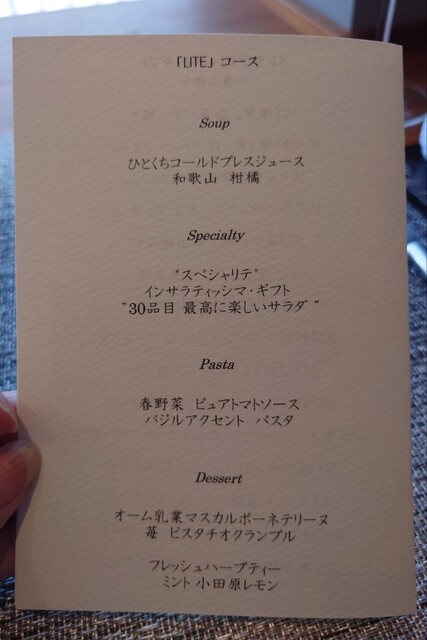 「LITE」コース
Soup
ひとくちコールドプレスジュース
和歌山 柑橘
Specialty
"スペシャリテ"
インサラティッシマ・ギフト
"30品目 最高に楽しいサラダ"
Pasta
春野菜 ピュアトマトソース
バジルアクセント パスタ
Dessert
オーム乳業マスカルポーネテリーヌ
苺 ピスタチオクランブル
フレッシュハーブティー
ミント 小田原レモン